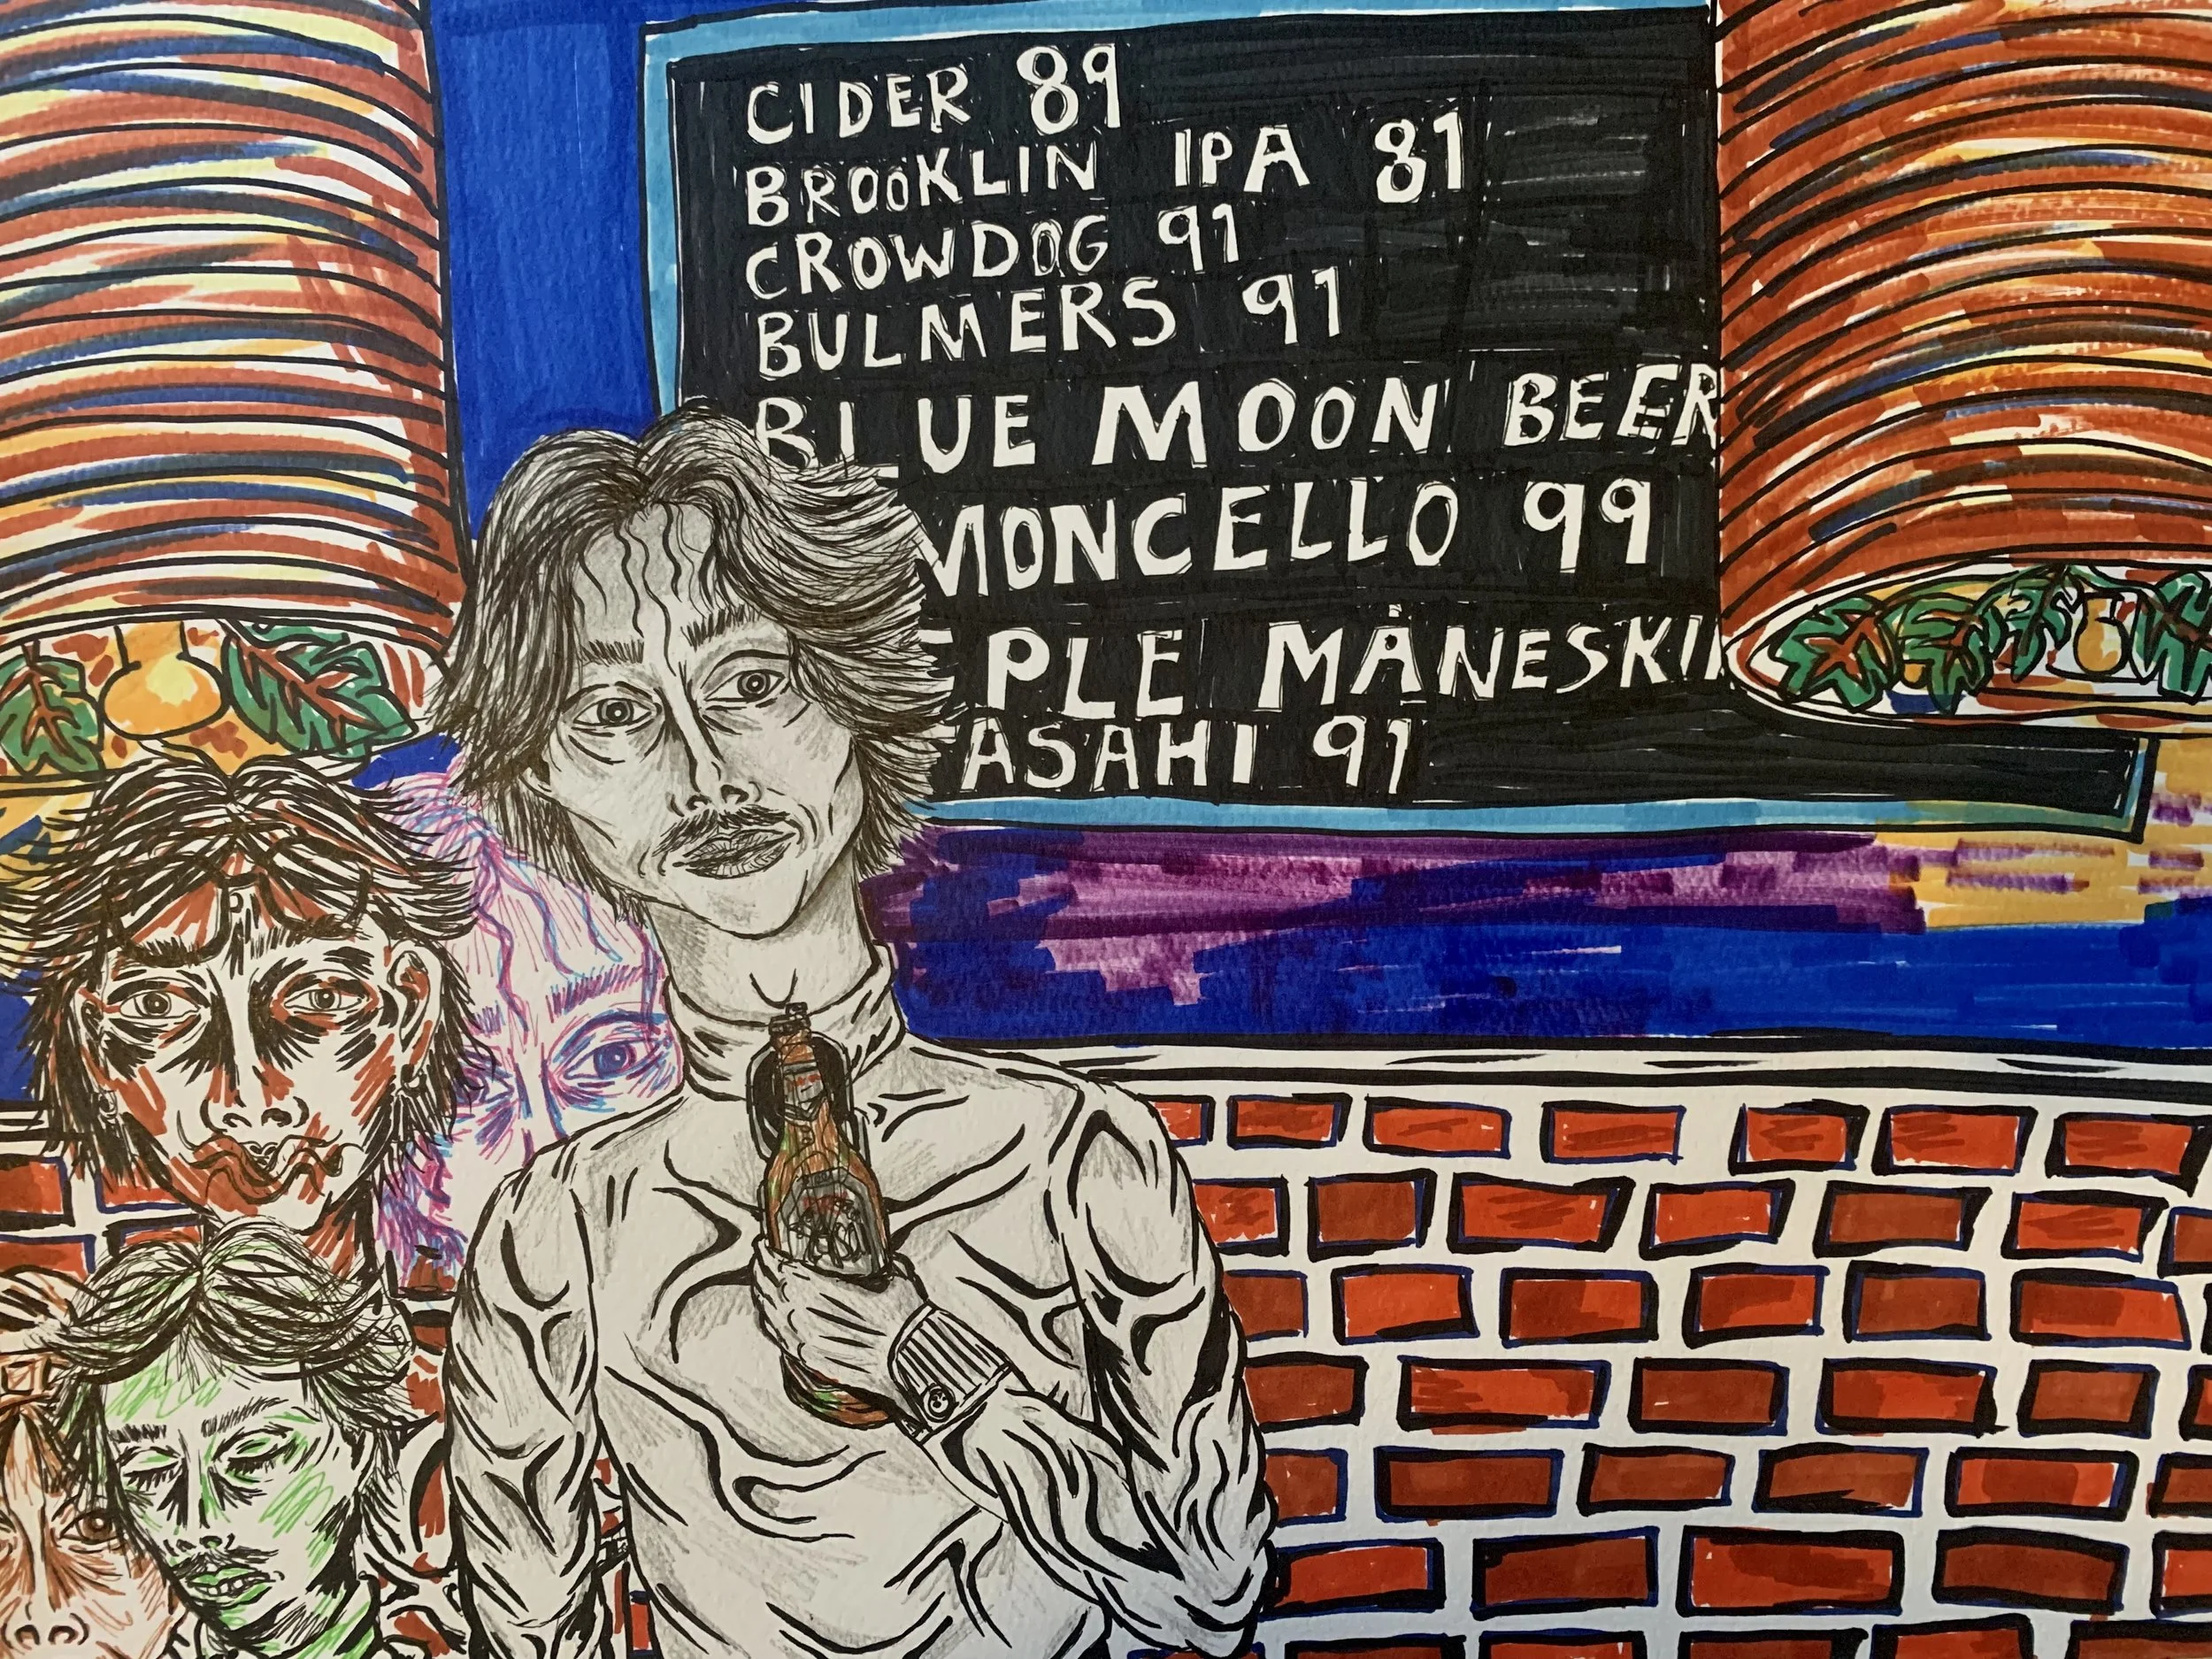 CIDER 89
BROOKLIN IPA 81
CROWDOG 91
BULMERS 91
BLUE MOON BEER
MONCELLO 99
PLE MÅNESKI
ASAHI 91